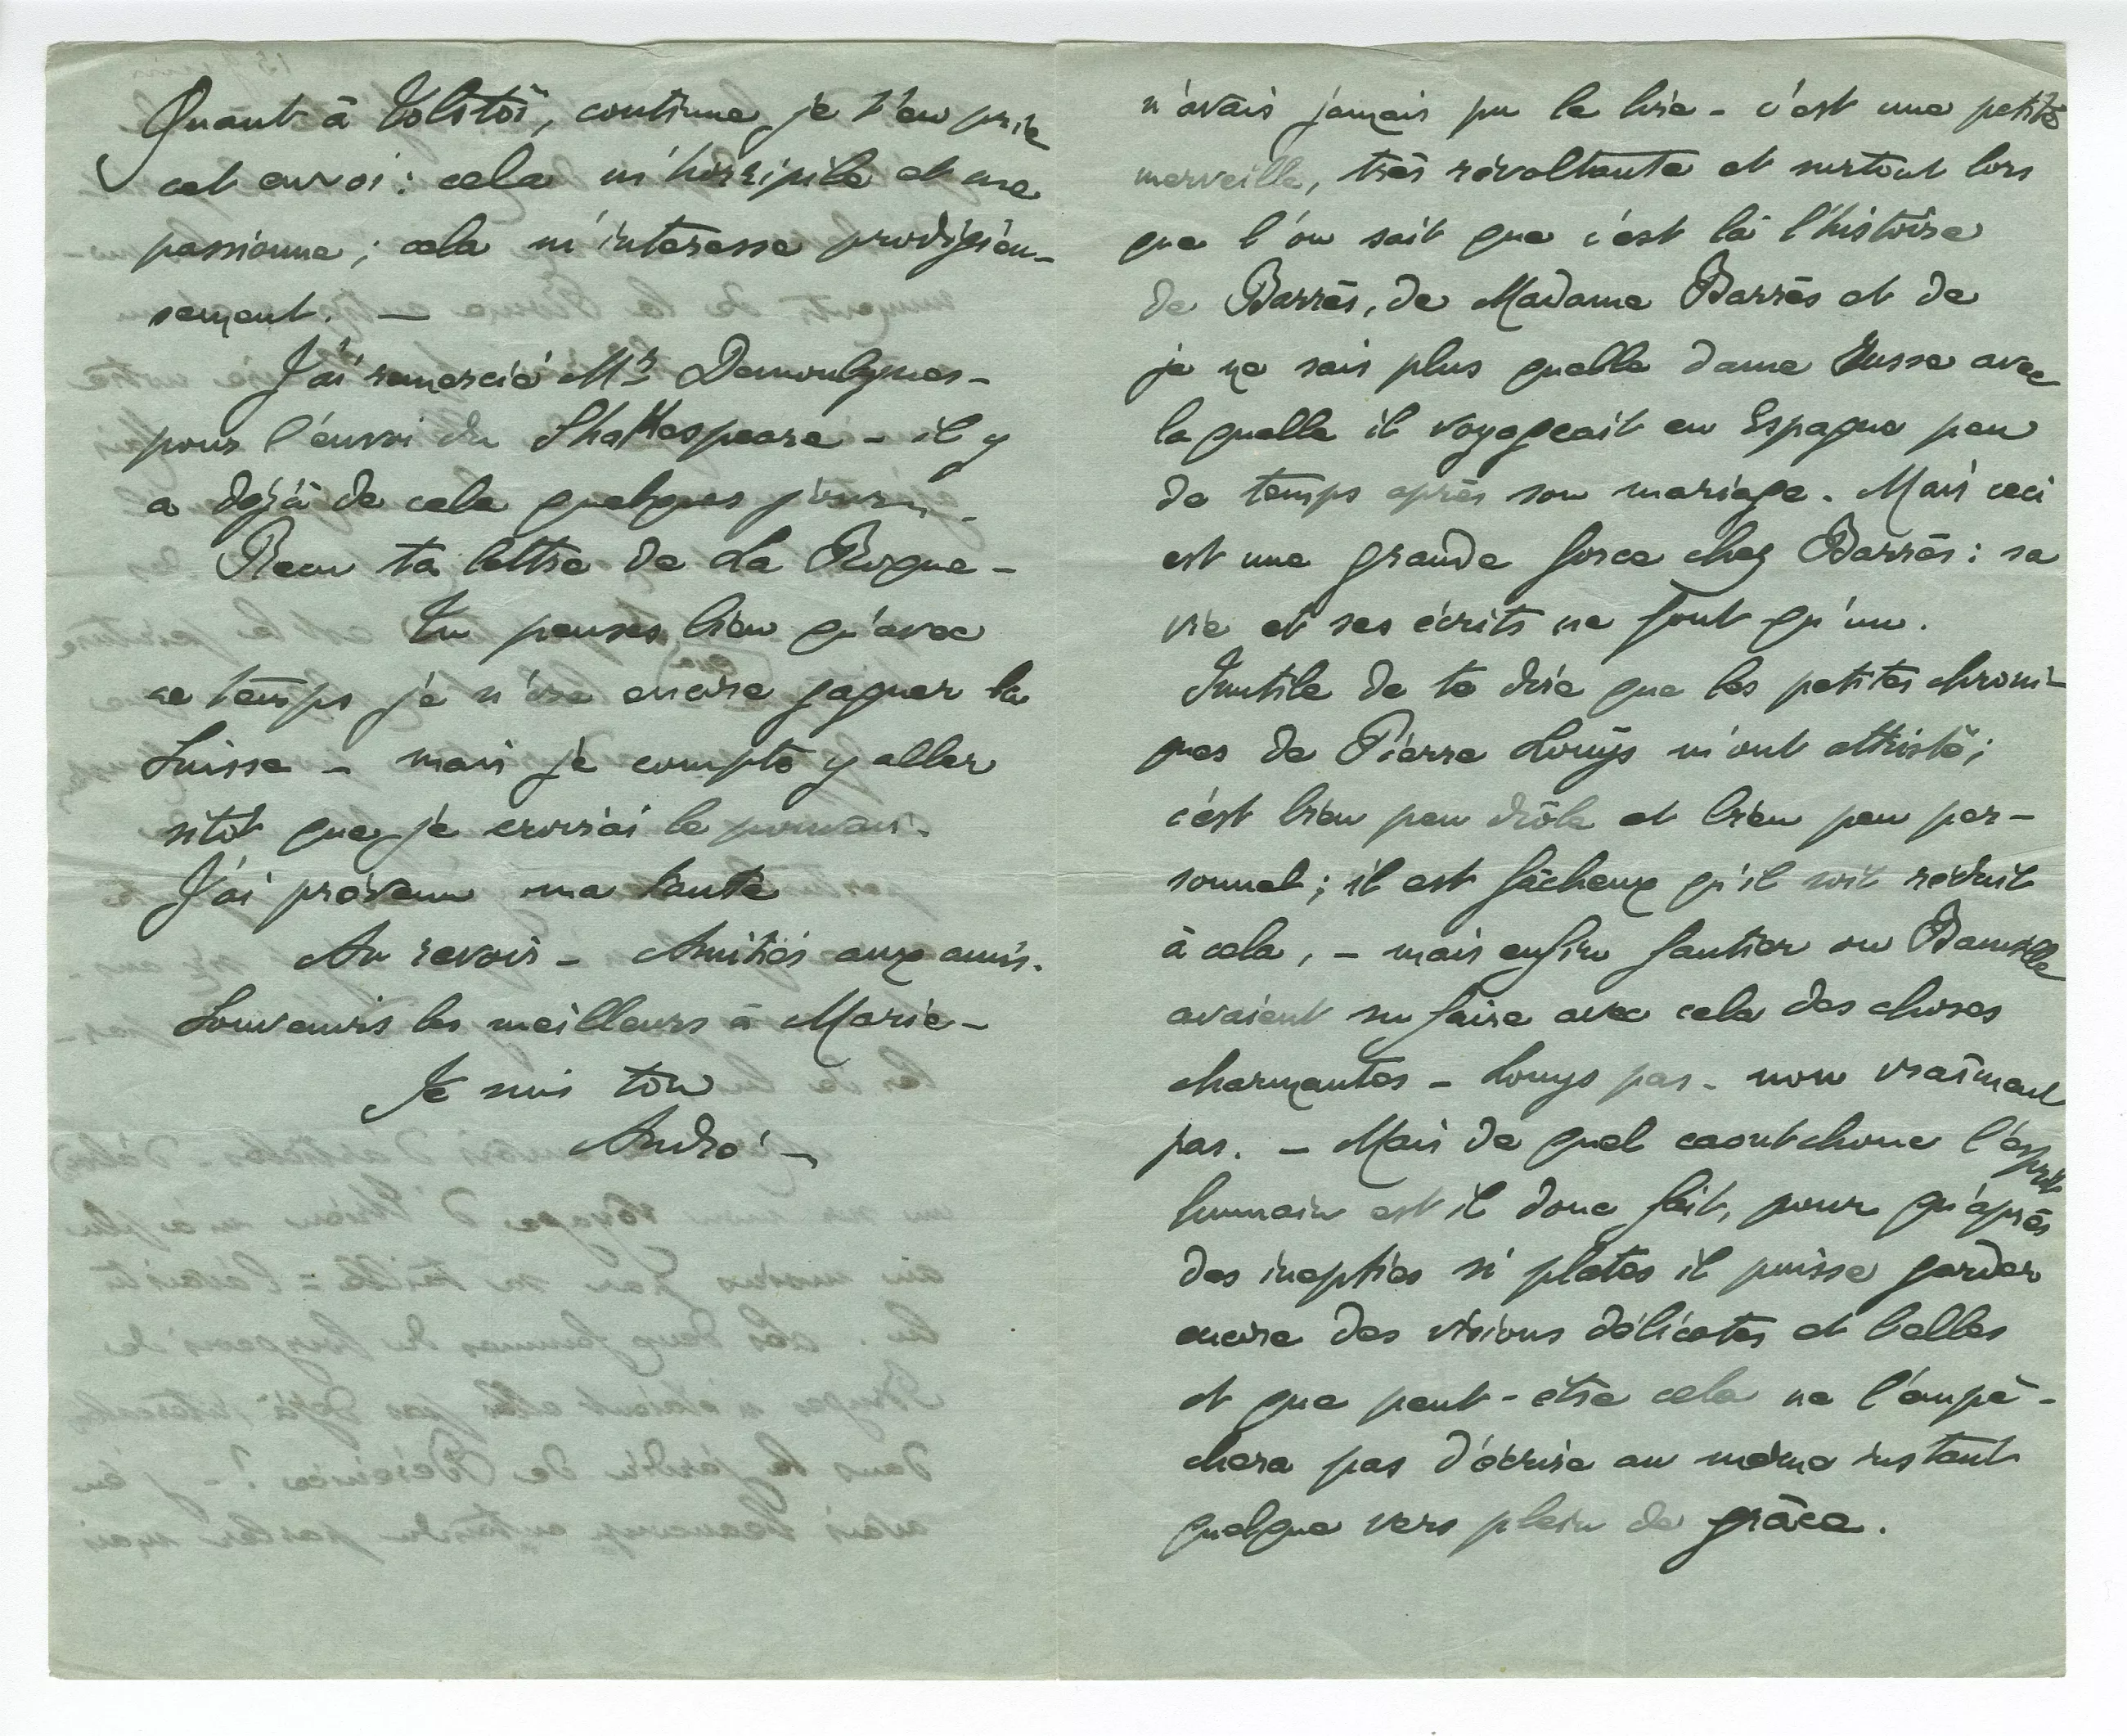 Quant à Tolstoï, continue, je t'en prie
cet envoi : cela m'horripile et me
passionne ; cela m'intéresse prodigieu-
sement. —
J'ai remercié Mr Demoulynes -
pour l'envoi du Shakespeare - il y
a déjà de cela quelques jours -
Reçu ta lettre de La Roque -
Tu penses bien qu'avec
ce temps je n'ose encore gagner la
Suisse - mais je compte y aller
sitôt que je croirai le pouvoir.
J'ai prévenu ma tante
Au revoir - Amitiés aux amis.
Souvenirs les meilleurs à Marie -
Je suis ton
André -
n'avais jamais pu le lire - c'est une petite
merveille, très révoltante et surtout lors
que l'on sait que c'est là l'histoire
de Barrès, de Madame Barrès et de
je ne sais plus quelle dame Russe avec
laquelle il voyageait en Espagne peu
de temps après son mariage. Mais ceci
est une grande force chez Barrès : sa
vie et ses écrits ne font qu'un.
Inutile de te dire que les petites chroni-
ques de Pierre Louÿs m'ont attristé ;
c'est bien peu drôle et bien peu per-
sonnel ; il est fâcheux qu'il soit réduit
à cela, - mais enfin Gautier ou Banville
avaient su faire avec cela des choses
charmantes - Louys pas - non vraiment
pas. - Mais de quel caoutchouc l'esprit
humain est il donc fait, pour qu'après
des inepties si plates il puisse garder
encore des visions délicates et belles
et que peut-être cela ne l'empê-
chera pas d'écrire au même instant
quelque vers plein de grâce.